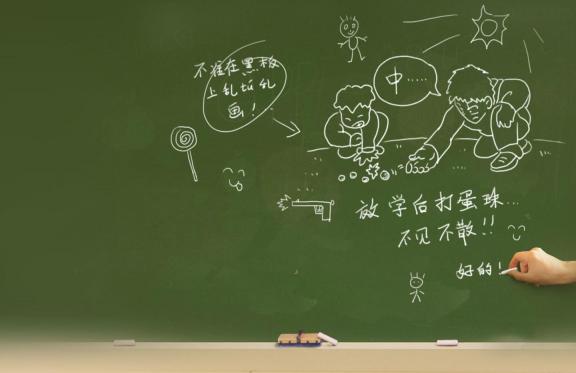 不准在黑板
上乱填乱
画!
中......
放学后打蛋珠...
不见不散!!
好的!